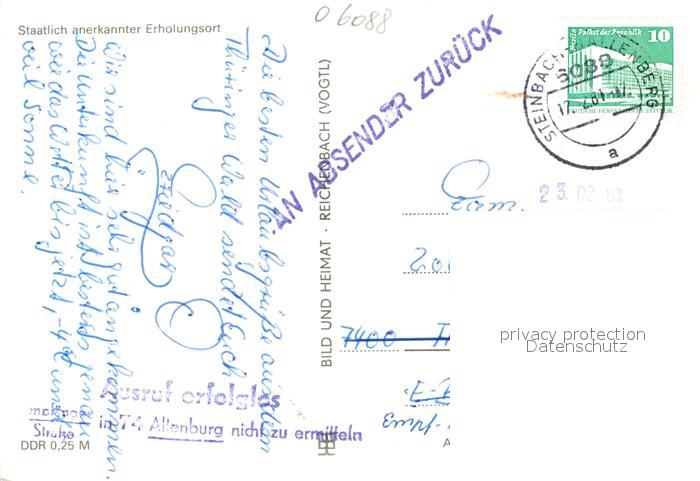 O 6088
Staatlich anerkannter Erholungsort
Die besten Urlaubsgrüße aus dem
Thüringer Wald sendet Euch
Wir sind hier sehr gut angekommen.
Die Unterkunft ist bestens genau
wie das Wetter bis jetzt, -4° und
viel Sonne.
AN ABSENDER ZURÜCK
BILD UND HEIMAT · REICHENBACH (VOGTL)
Berlin Palast der Republik 10
DEUTSCHE DEMOKRATISCHE REPUBLIK
STEINBACH-HALLENBERG
6088
a
23.02.81
7400
privacy protection
Datenschutz
Ausruf erfolglos
in 74 Altenburg nicht zu ermitteln
Straße
DDR 0,25 M
A